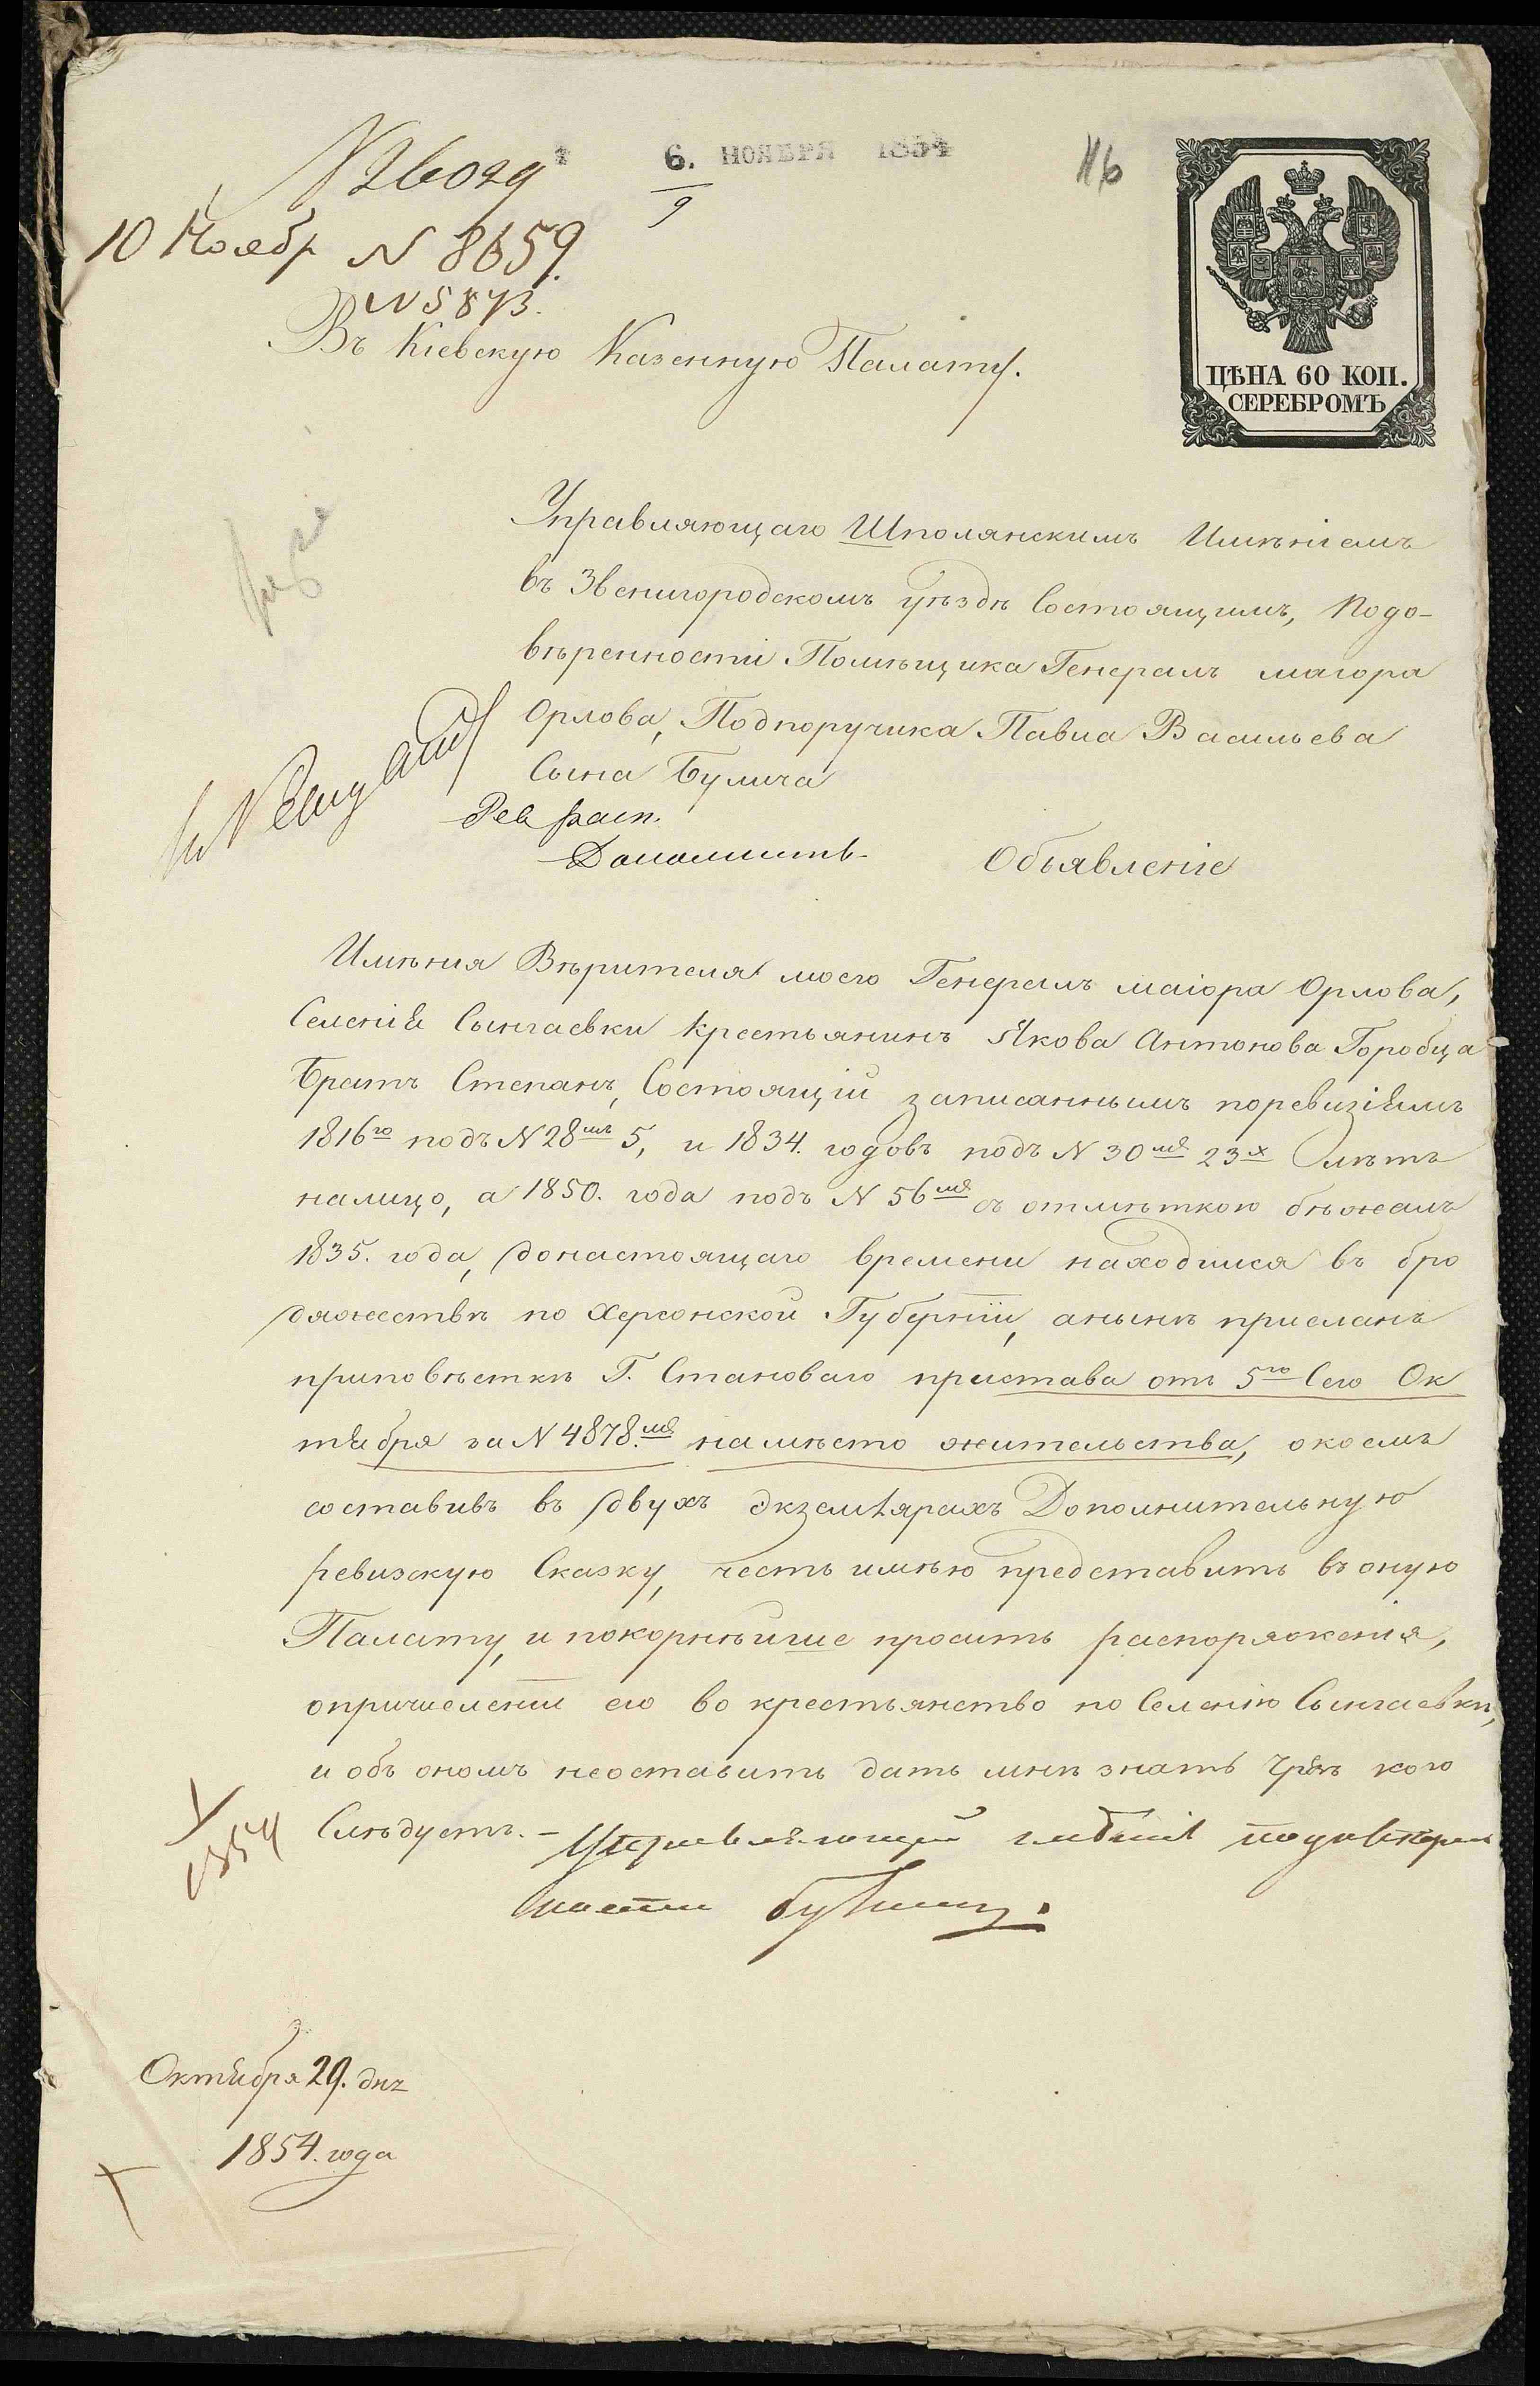 N 26029
6. НОЯБРЯ 1854
9
116
10 Ноябр N 8659.
N 5873.
ЦѢНА 60 КОП.
СЕРЕБРОМЪ
Въ Кіевскую Казенную Палату.
Управляющаго Шполянскимъ Имѣніемъ
въ Звенигородскомъ уѣздѣ Состоящимъ, Подо-
вѣренности Помѣщика Генералъ маіора
Орлова, Подпоручика Павла Васильева
Сына Булича
Рев расп.
Объявленіе
Имѣнія Вѣрителя моего Генералъ маіора Орлова,
Селенія Сынгаевки Крестьянинъ Якова Антонова Горобца
Братъ Степанъ, Состоящій записаннымъ поревизіямъ
1816го подъ N 28мъ 5, и 1834. годовъ подъ N 30мъ 23х лѣтъ
налицо, а 1850. года подъ N 56мъ съ отмѣткою бѣжалъ
1835. года, донастоящаго времени находился въ бро
дяжествѣ по Херсонской Губерніи, анынѣ присланъ
приповѣсткѣ Г. Становаго пристава отъ 5го Сего Ок
тября за N 4878.мъ намѣсто жительства, окоемъ
составивъ въ двухъ экземлярахъ Дополнительную
ревизскую Сказку, честь имѣю представить въ оную
Палату, и покорнѣйше просить распоряженія,
опричисленіи его во крестьянство по Селенію Сынгаевки,
и объ ономъ неоставить дать мнѣ знать Чрезъ кого
Слѣдуетъ. – Управляющий имѣніе подовѣрен
ности Булич.
1854
Октября 29. дня
1854. года